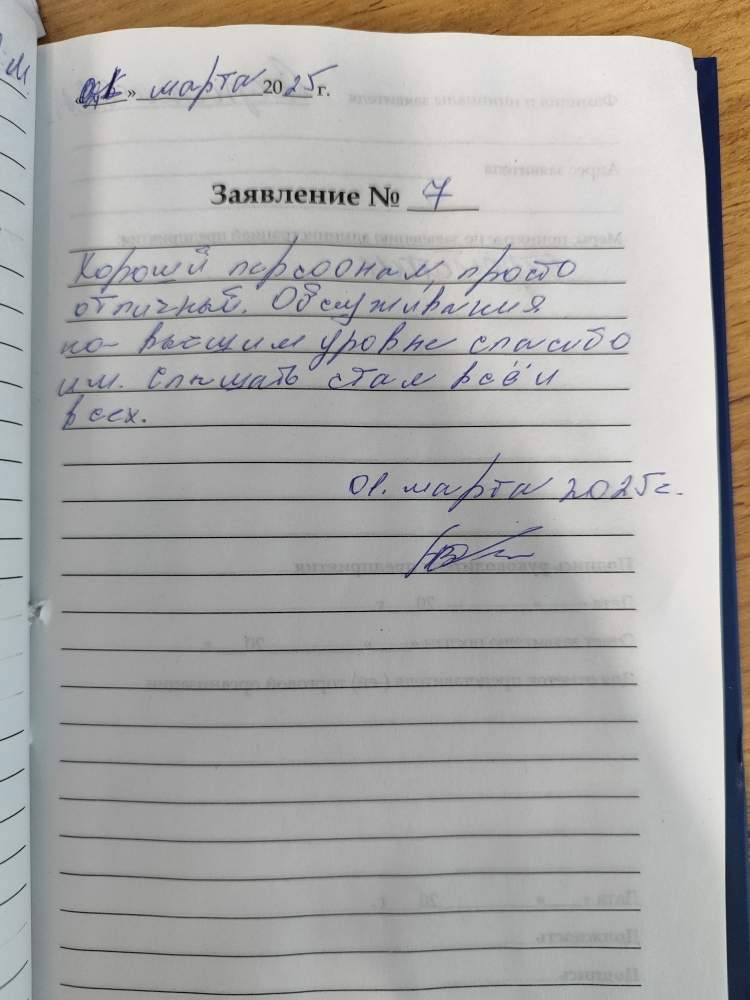 «01» марта 2025 г.
Заявление № 7
Хороший персоонал, просто
отличный. Обслуживания
на высщим уровне спасибо
им. Слышать стал всё и
всех.
01. марта 2025г.